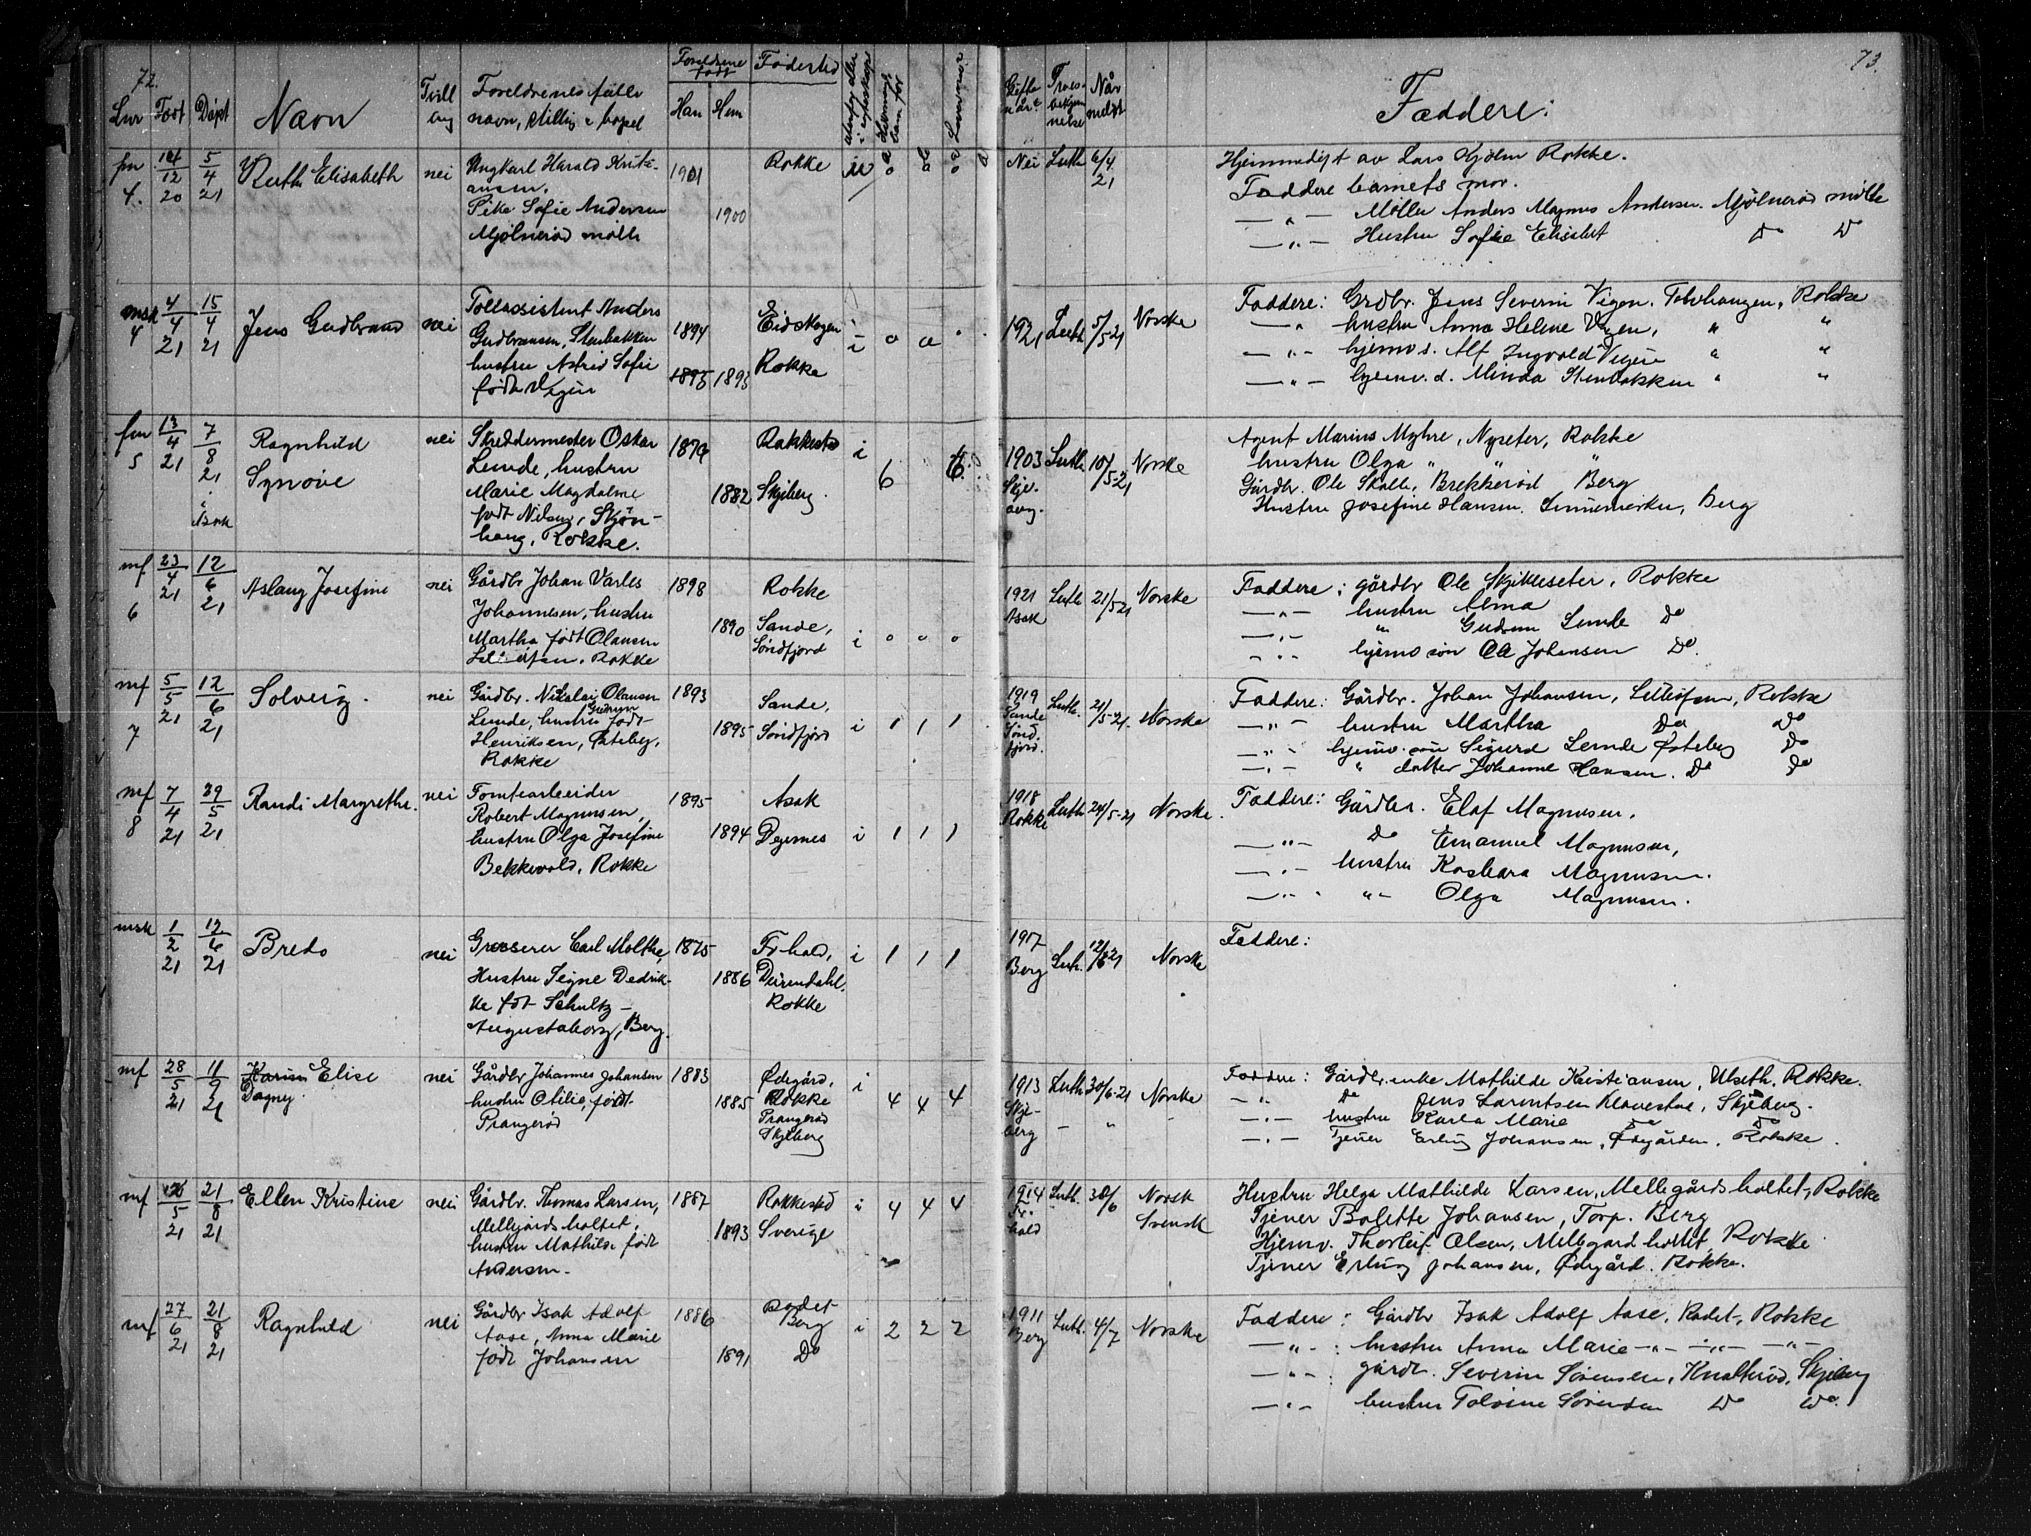 72.
Lnr Født Døpt Navn Tvill ing Foreldrenes fulle navn, stilling & bopel Foreldrene født Han Hun Fødested
fm 4. 14/12 20 5/4 21 Ruth Elisabeth nei Ungkarl Harald Kristi- 1901 Rokke u o o o
ansen.
Pike Sofie Andersen 1900
Mjølnerød mølle
msk 4 4/4 21 15/4 21 Jens Gudbrand nei Tollassistent Anders 1894 Eidskogen i o o
Gudbransen, Stenbakken
hustru Astrid Sofie 1895 1893 Rokke
født Vigen
fm 5 13/4 21 7/8 21 i Asak Ragnhild nei Skreddermester Oskar 1876 Rakkestad i 6 6.
Synøve Lunde, hustru
Marie Magdalene 1882 Skjeberg.
født Nilsen, Skjøn-
haug, Rokke.
mf 6 23/4 21 12/6 21 Aslaug Josefine nei Gårdbr Johan Varles 1898 Rokke
Johannesen, hustru 1890 Sande,
Martha født Olausen Søndfjord i o o o
Rokke
mf 7 5/5 21 12/6 21 Solveig. nei Gårdbr. Nikolai Olausen 1893 Sande,
Lunde, hustru Gudrun født 1895 Søndfjord i 1 1 1
Henriksen, Østeby,
Rokke
mf 8 7/4 21 29/5 21 Randi Margrethe. nei Tomtearbeider 1895 Asak
Robert Magnusen,
hustru Olga Josefine 1894 Degernes i 1 1 1
Bekkevold, Rokke
msk 1/2 21 12/6 21 Bredo nei Grosserer Carl Moltke 1875 Fr.hald, i 1 1 1
Hustru Signe Dedrik- 1886
ke født Schultz - Rokke
Augustaborg, Berg.
mf 28/5 21 11/9 21 Karin Elise nei Gårdbr Johannes Johansen 1883 Ødegård, i
Dagny hustru Otilie, født 1885 Rokke 4 4 4
Prangerød Prangerød
Skjeberg
mf 5 21 21/8 21 Ellen Kristine nei Gårdbr. Thomas Larsen, 1887 Rakkestad i 4 4 4
Mellegårdsholtet, 1893 Sverige
hustru Mathilde født
Andersen.
mf 27/6 21 21/8 21 Ragnhild nei Gårdbr Isak Adolf 1886 Rødet Berg i 2 2 2
Aase, Anna Marie 1891 Do
født Johansen
73.
Gifte når? Troes-bekjen nelse Når meldt Faddere:
Nei Luth 6/4 21 Hjemmedøpt av Lars Rokke.
Faddere barnets mor.
— " — Møller Anders Magnus Andersen. Mjølnerød mølle
— " — Hustru Sofie Elisabet Do Do
1921 Luth 5/5-21 Norske Faddere: Grdbr. Jens Severin Vigen, Rokke
— " hustru Anna Helene Vigen, " "
— " — hjemv. s. Alf Ingvald Vigen " "
— " — hjemv. d. Minda Stenbakken " "
1903 Skje- berg. Luth 10/5-21 Norske Agent Marius Myhre, Nyseter, Rokke
hustru Olga " " "
Gårdbr. Ole Skolle, Brekkerød Berg
Hustru Josefine Hansen. Berg
1921 Asak Luth 21/5-21 Norske Faddere: gårdbr Ole Rokke
— " — hustru Alma
— " — " Gudrun Lunde Do
— " — hjemv søn Ole Johansen Do.
1919 Sande Sønd. fjord. Luth. 21/5-21. Norske Faddere: Gårdbr. Johan Johansen, Rokke
— " — hustru Martha Do Do
— " — hjemv. søn Sigurd Lunde Østeby Do
— " — " datter Johanne Hansen. Do Do
1918 Rokke Luth 24/5-21 Norske. Faddere: Gårdbr. Elaf Magnusen.
— " — Do Emanuel Magnusen,
— " — hustru Magnusen.
— " — " — Olga Magnusen.
1917 Berg Luth. 12/6 21 Norske Faddere:
1913 Skje- berg Luth 30/6-21 Norske Faddere: Gårdbr. enke Mathilde Kristiansen, Ulseth, Rokke.
— " — Do Jens Larentsen Skjeberg.
— " — hustru Karla Marie Do Do
— " — Tjener Erling Johansen, Ødegården, Rokke.
1914 Fr. hald Luth. 30/6 Norsk Svensk Hustru Helga Mathilde Larsen, Mellegårdsholtet, Rokke
Tjener Bolette Johansen, Torp. Berg
Hjemv. Thorleif Olsen, Mellegård holtet Rokke
Tjener Erling Johansen, Ødegård. Rokke.
1911 Berg Luth. 4/7 Norske Faddere: Gårdbr Isak Adolf Aase, Rødet, Rokke
— " — : hustru Anna Marie — " — — " — — " —
— " — : gårdbr. Severin Sørensen, Knatterød, Skjeberg
— " — hustru Tolvine Sørensen Do Do.